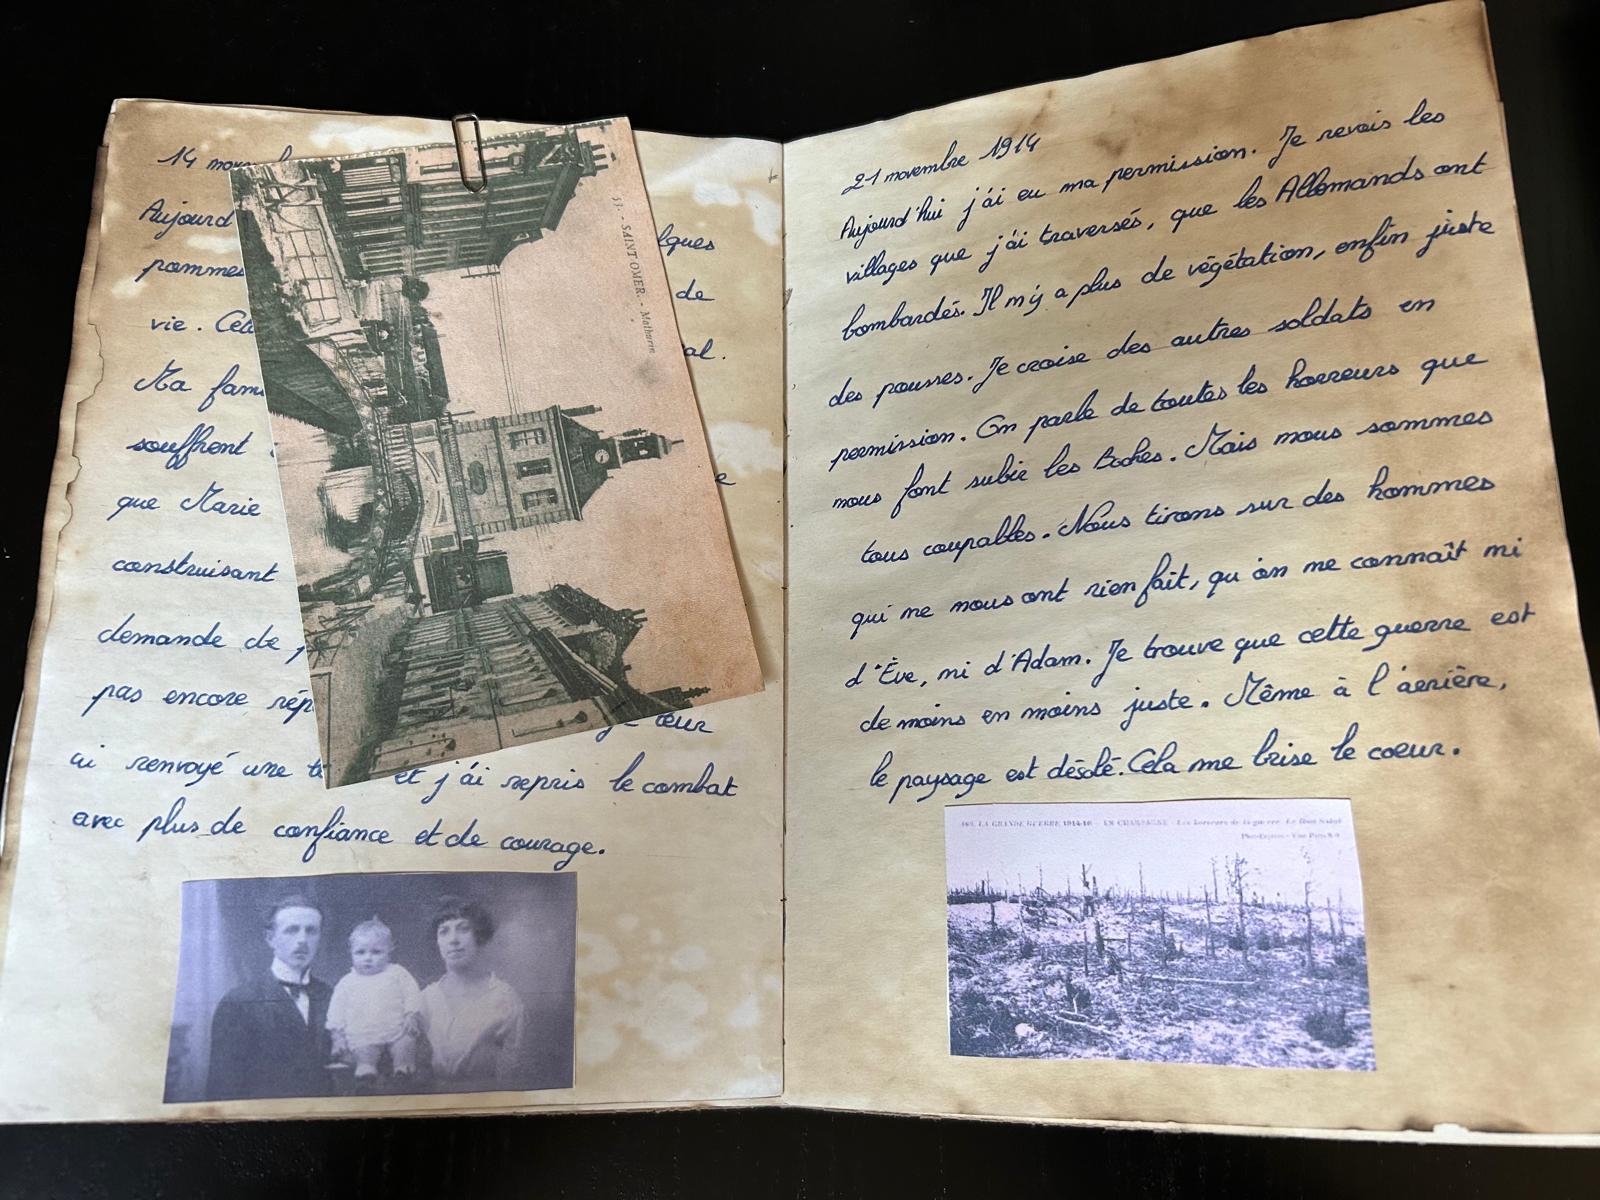 14
Aujourd
lques
pommes
de
vie. Cela
al.
Ma fam
souffrent
que Marie
e
construisant
demande de
pas encore rép
cœur
ai renvoyé une
et j'ai repris le combat
avec plus de confiance et de courage.
53. - SAINT-OMER. - Mathurin
21 novembre 1914
Aujourd'hui j'ai eu ma permission. Je revois les
villages que j'ai traversés, que les Allemands ont
bombardés. Il n'y a plus de végétation, enfin juste
des pousses. Je croise des autres soldats en
permission. On parle de toutes les horreurs que
nous font subir les Boches. Mais nous sommes
tous coupables. Nous tirons sur des hommes
qui ne nous ont rien fait, qu'on ne connaît ni
d'Ève, ni d'Adam. Je trouve que cette guerre est
de moins en moins juste. Même à l'arrière,
le paysage est désolé. Cela me brise le coeur.
LA GRANDE GUERRE 1914-16 - EN CHAMPAGNE - Les horreurs de la guerre
Phot-Express - Visé Paris